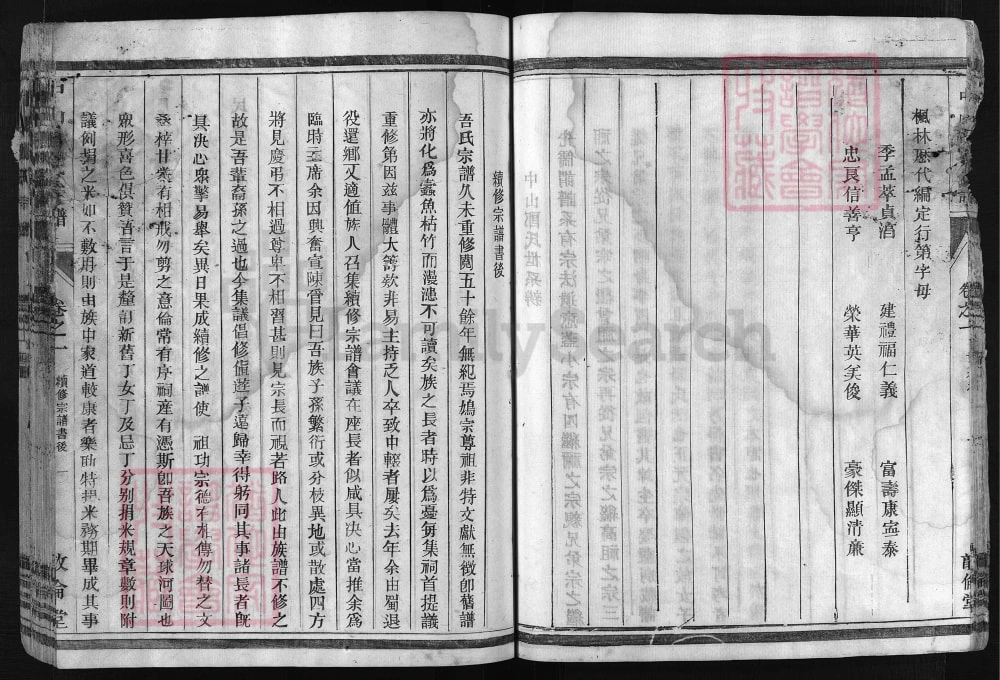 楓林歷代編定行第字母
季孟萃貞滔 建禮福仁義 富壽康寧泰
忠良信善亨 榮華英美俊 豪傑顯清廉
卷之一
敦倫堂
續修宗譜書後
吾氏宗譜久未重修閱五十餘年無紀焉嗚宗尊祖非特文獻無徵卽舊譜
亦將化爲蠹魚枯竹而漫漶不可讀矣族之長者時以爲憂每集祠首提議
重修第因茲事體大籌欵非易主持乏人卒致中輟者屢矣去年余由蜀退
役還鄉又適値族人召集續修宗譜會議在座長者似咸具决心當推余爲
臨時主席余因興奮宣陳管見曰吾族子孫繁衍或分枝異地或散處四方
將見慶弔不相過尊卑不相習甚則見宗長而視若路人此由族譜不修之
故是吾輩裔孫之過也今集議倡修値蓮子遠歸幸得躬同其事諸長者旣
具决心衆擎易舉矣異日果成續修之譜使 祖功宗德不相傳勿替之文
桑梓甘棠有相戒勿剪之意倫常有序祠產有憑斯卽吾族之天球河圖也
衆形喜色俱贊吾言于是釐訂新舊丁女丁及忌丁分别捐米規章數則附
議劍捐之米如不敷用則由族中家道較康者樂助特捐米務期畢成其事
卷之一
續修宗譜書後
一
敦倫堂
FamilySearch